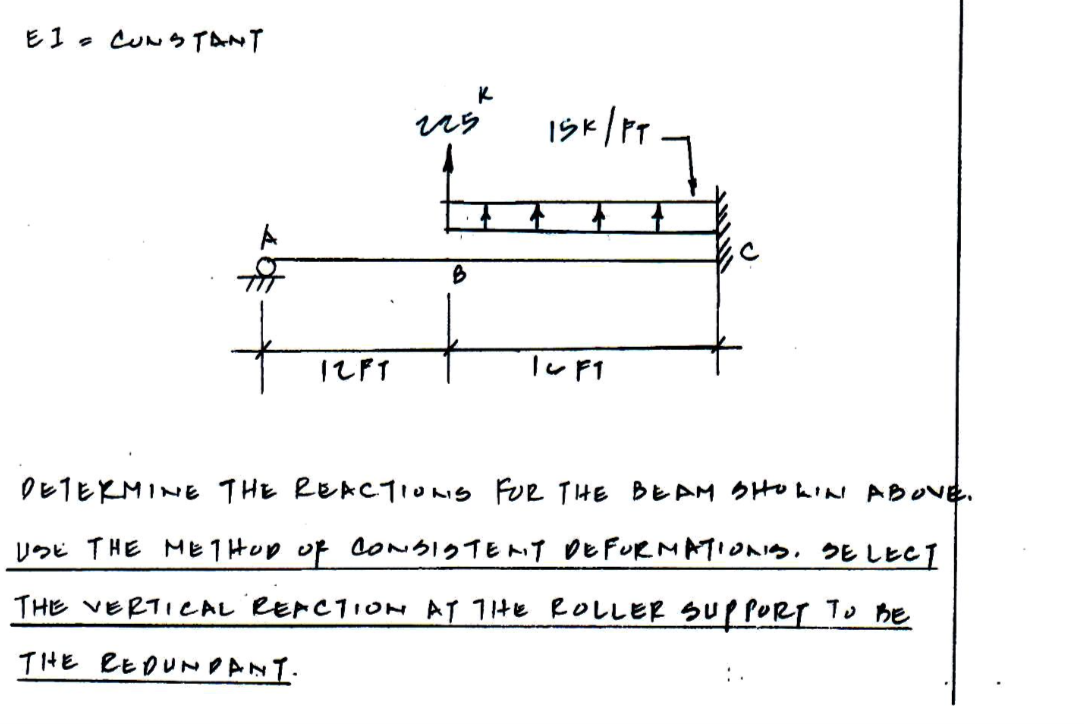 EI = CONSTANT
225 K
15K/FT
A
B
C
12FT
FT
DETERMINE THE REACTIONS FOR THE BEAM SHOWN ABOVE.
USE THE METHOD OF CONSISTENT DEFORMATIONS. SELECT
THE VERTICAL REACTION AT THE ROLLER SUPPORT TO BE
THE REDUNDANT.